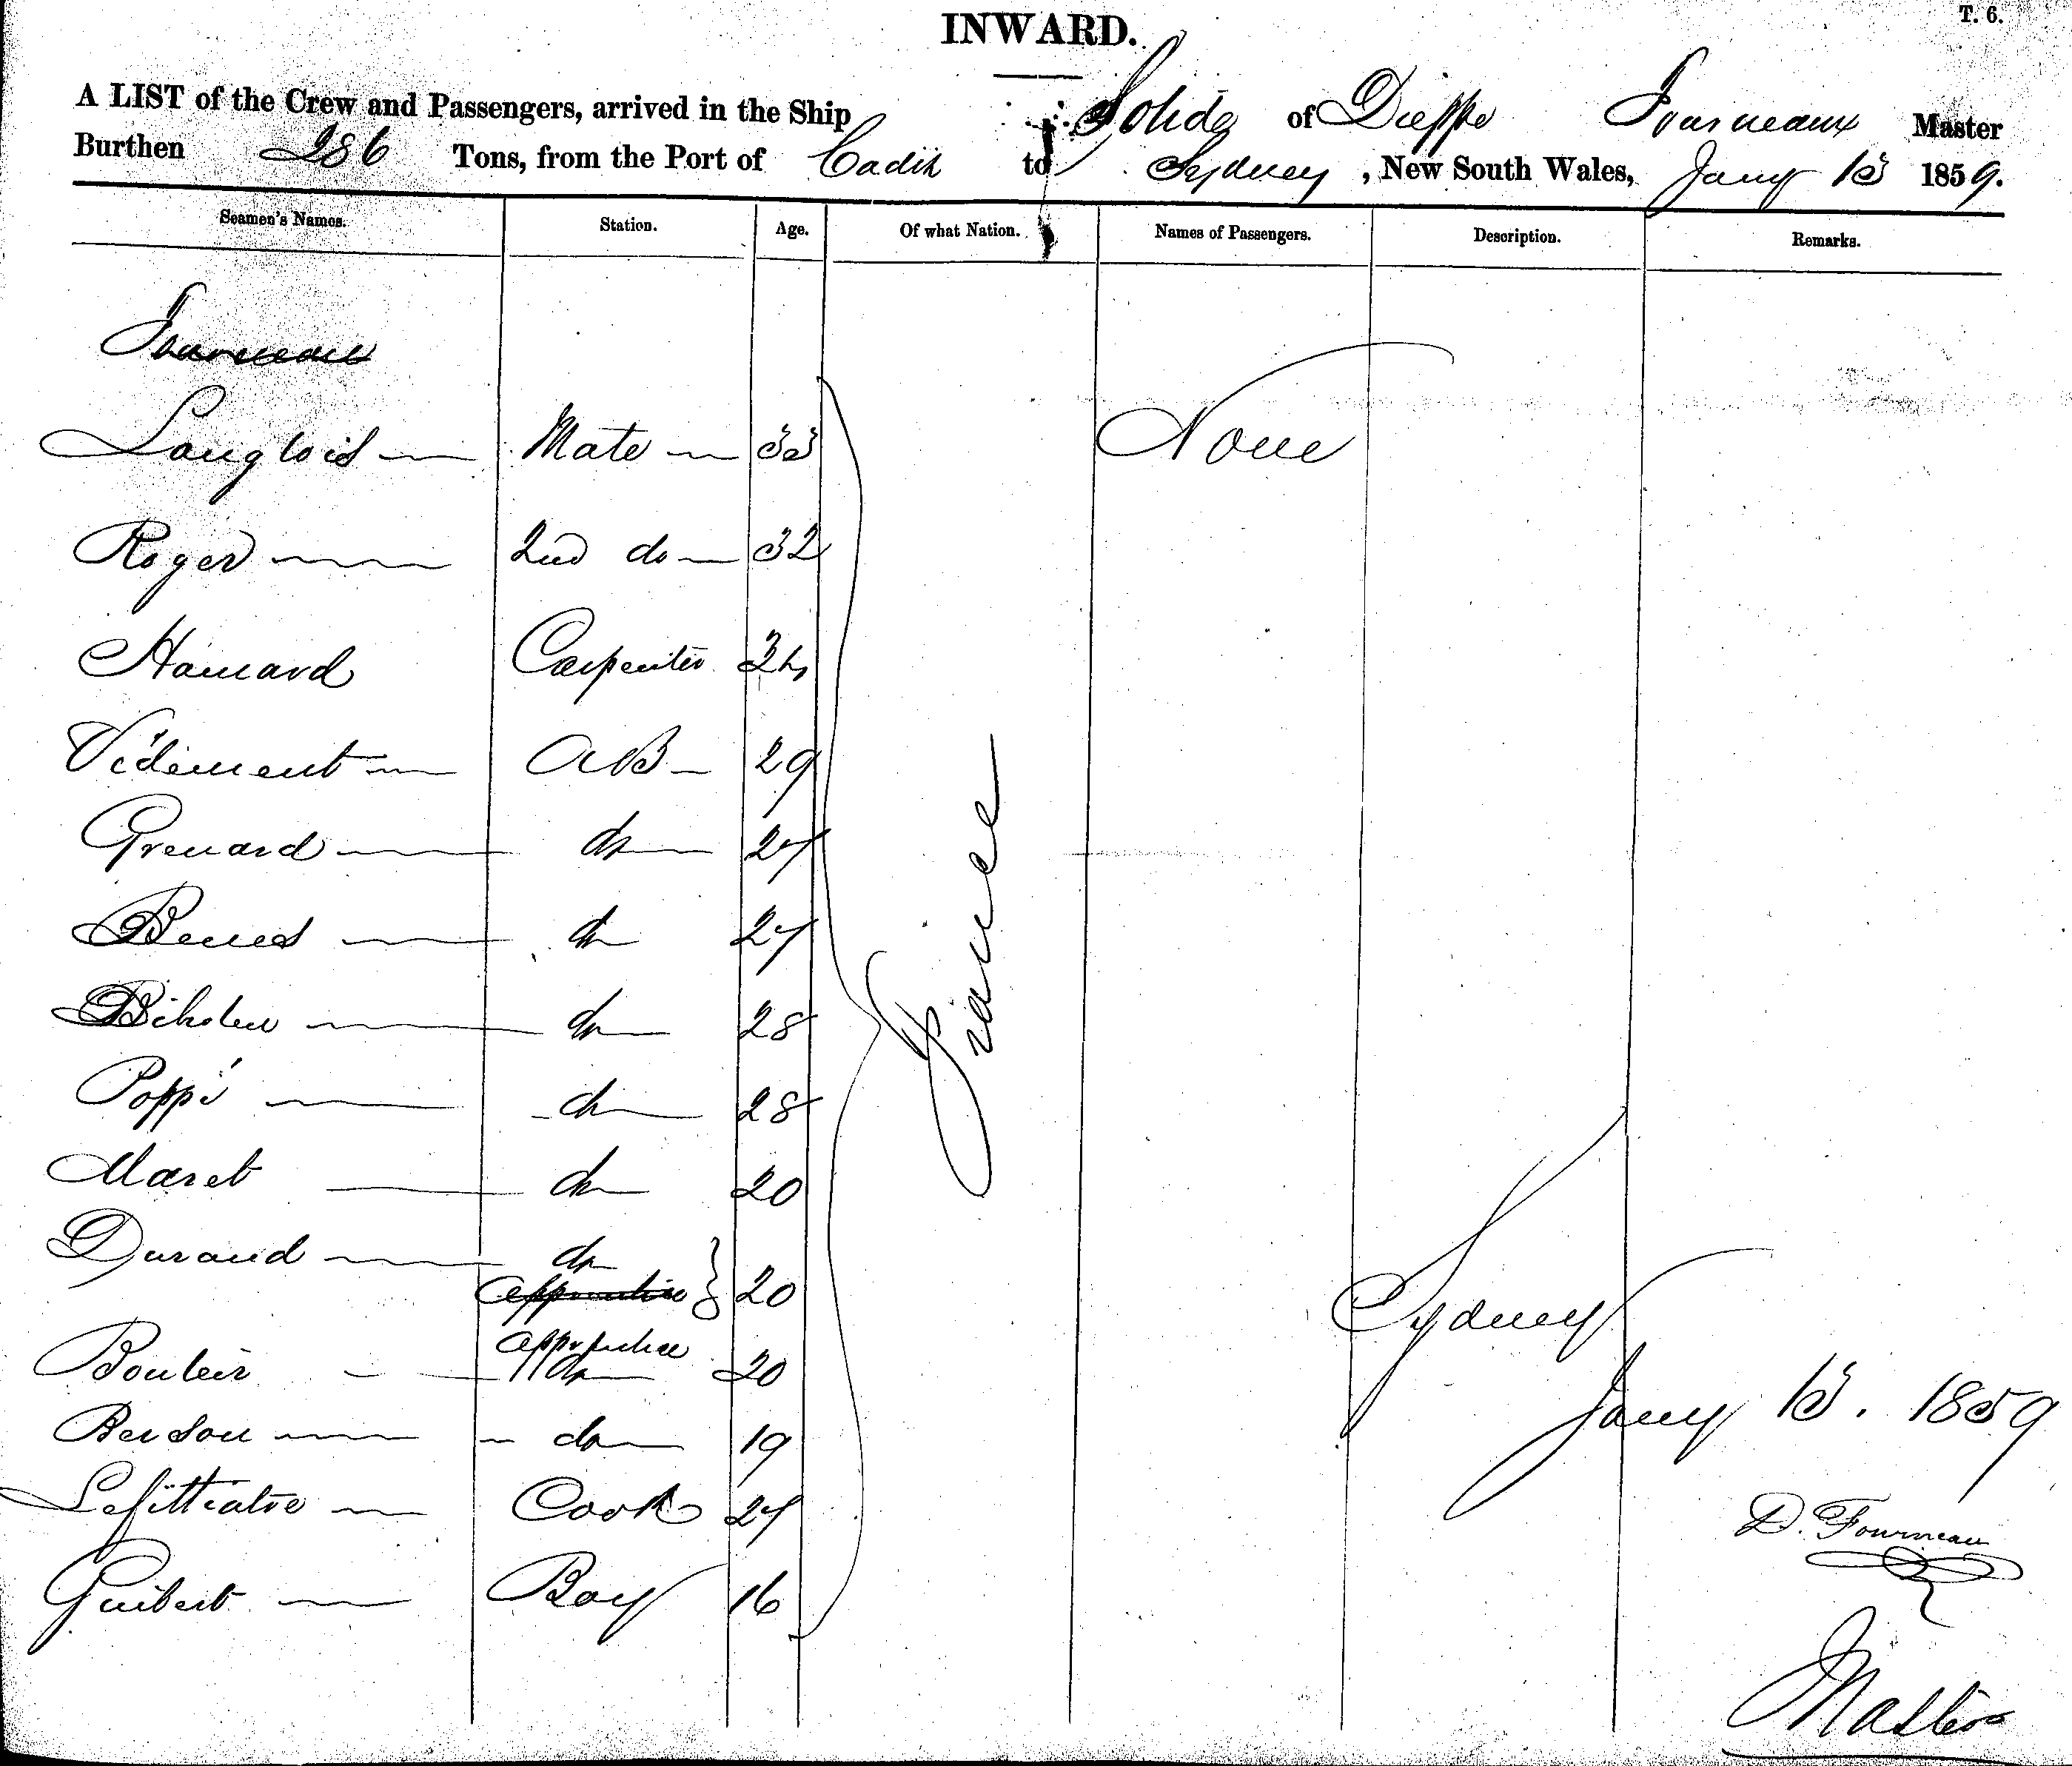 INWARD.
T. 6.
A LIST of the Crew and Passengers, arrived in the Ship Solide of Dieppe Fourneaux Master
Burthen 286 Tons, from the Port of Cadix to Sydney, New South Wales, Jany 13 1859.
Seamen's Names. Station. Age. Of what Nation. Names of Passengers. Description. Remarks.
Fourneau
Langlois Mate 33 None
Roger 2nd do 32
Hamard Carpenter
Védiment AB 29
Grenard do 27
do 27
do 28
Poppé do 28
Maret do 20
Durand do
apprentice 20
apprentice
do 20
Benson do 19
Cook 27
Guibert Boy 16
France
Sydney
Jany 13. 1859
D. Fourneau
Master